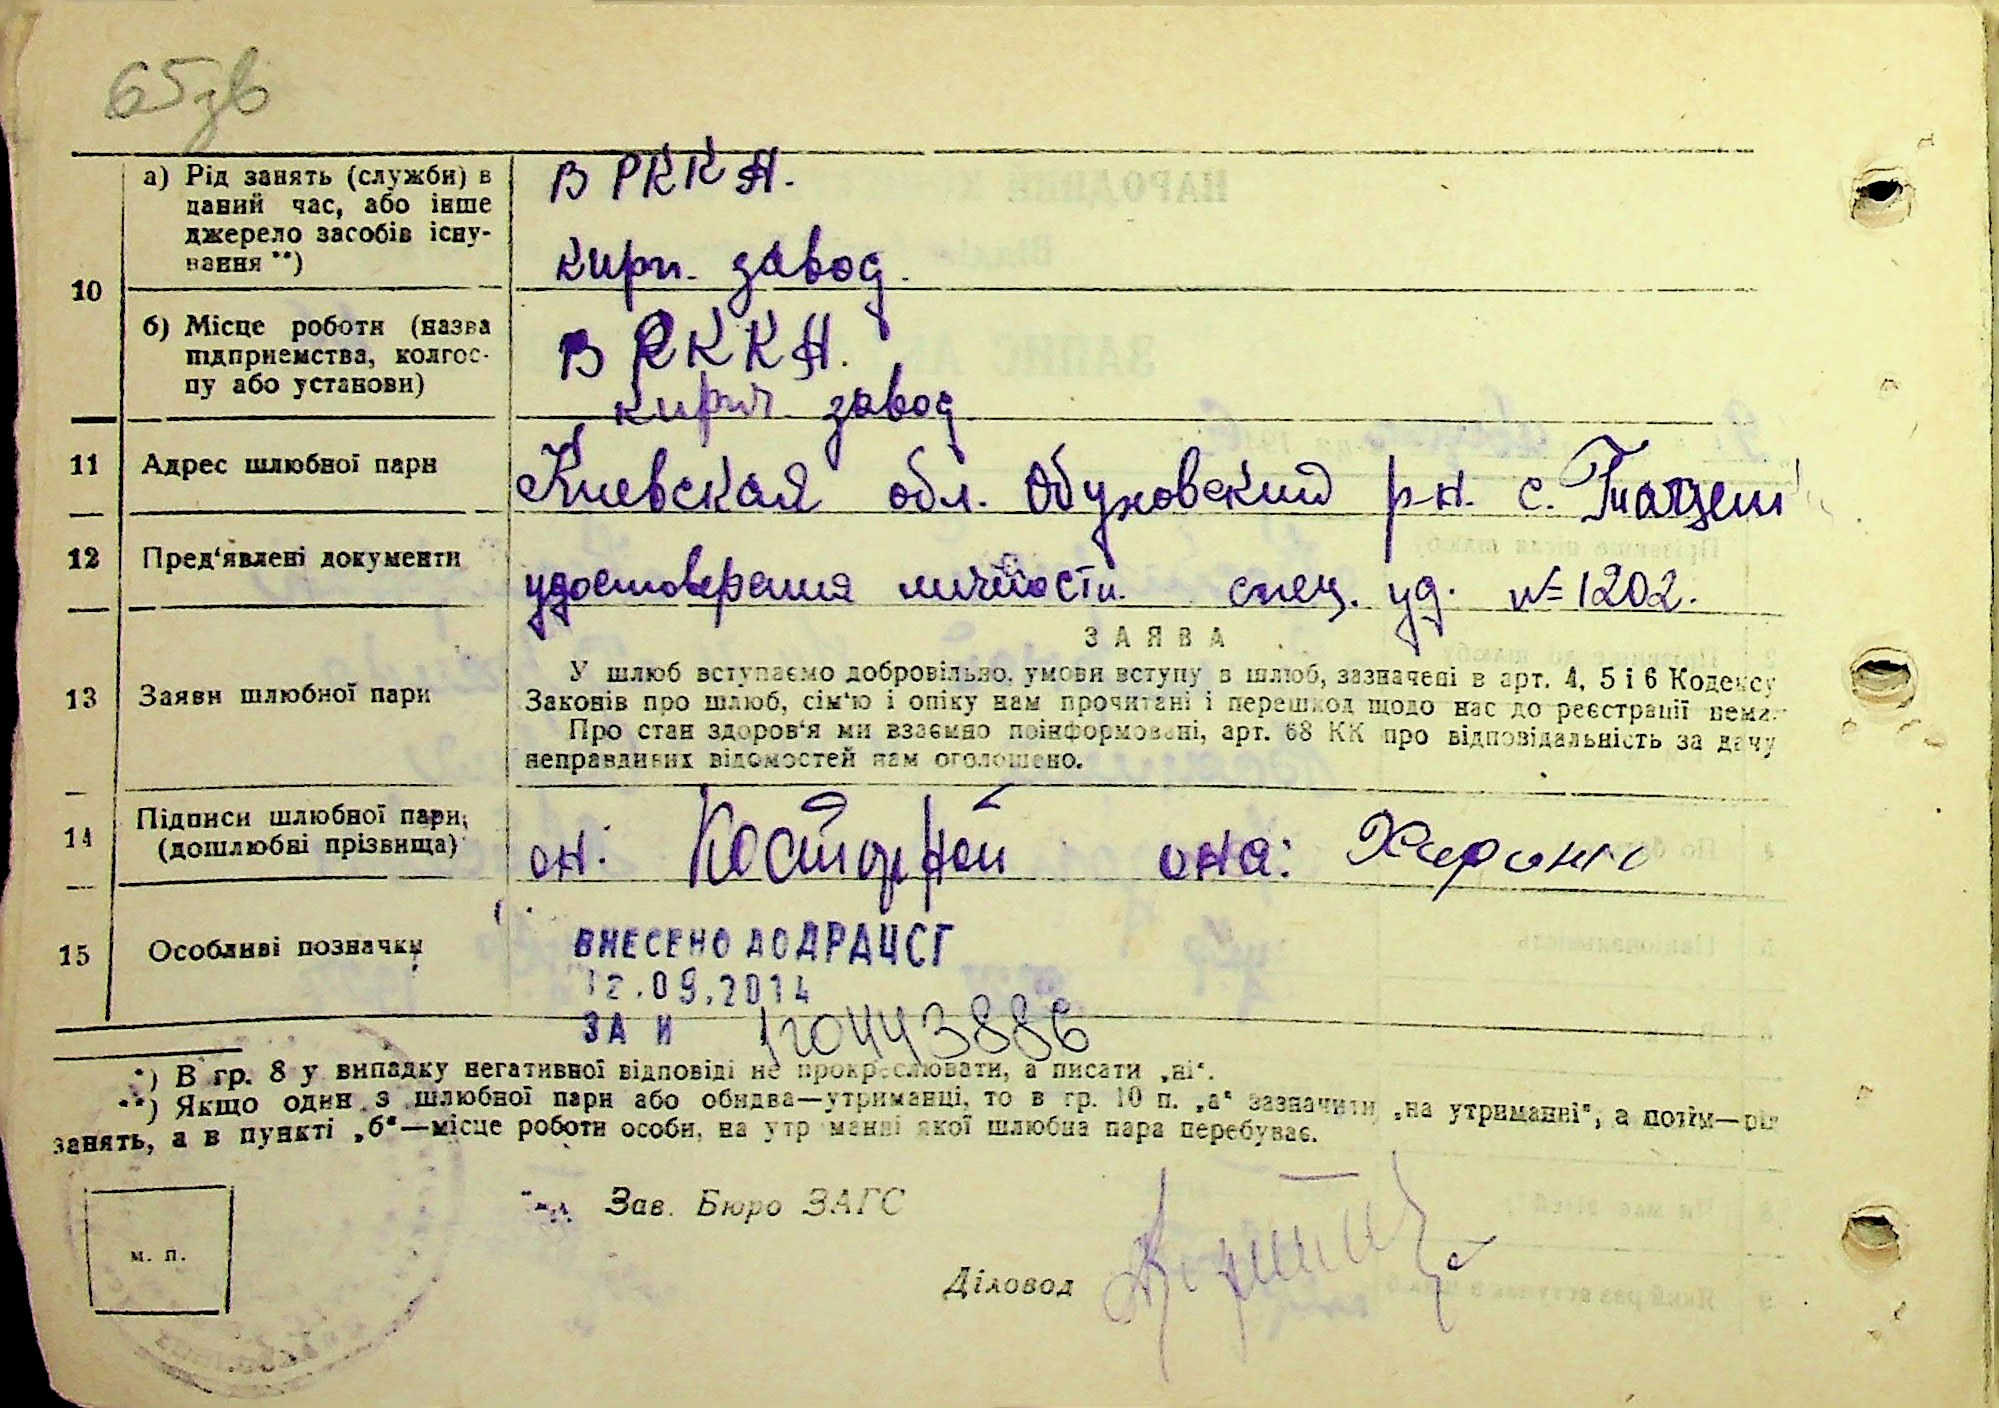 65зв
10
а) Рід занять (служби) в
даний час, або інше
джерело засобів існу-
вання **)
в РККА.
кирп. завод.
б) Місце роботи (назва
підприємства, колгос-
пу або установи)
в РККА.
кирп. завод
11 Адрес шлюбної пари Киевская обл. Обуховский р-н. с.
12 Пред'явлені документи удостоверения личности. спец. уд. № 1202.
ЗАЯВА
13 Заяви шлюбної пари
У шлюб вступаємо добровільно, умови вступу в шлюб, зазначені в арт. 4, 5 і 6 Кодексу
Законів про шлюб, сім'ю і опіку нам прочитані і перешкод щодо нас до реєстрації нема.
Про стан здоров'я ми взаємно поінформовані, арт. 68 КК про відповідальність за дачу
неправдивих відомостей нам оголошено.
14 Підписи шлюбної пари,
(дошлюбні прізвища)
он: она:
15 Особливі позначки
ВНЕСЕНО ДО ДРАЦСГ
12.09.2014
ЗА N
*) В гр. 8 у випадку негативної відповіді не прокреслювати, а писати „ні“.
**) Якщо один з шлюбної пари або обидва—утриманці, то в гр. 10 п. „а“ зазначити „на утриманні“, а потім—рід
занять, а в пункті „б“—місце роботи особи, на утриманні якої шлюбна пара перебуває.
м. п.
Зав. Бюро ЗАГС
Діловод